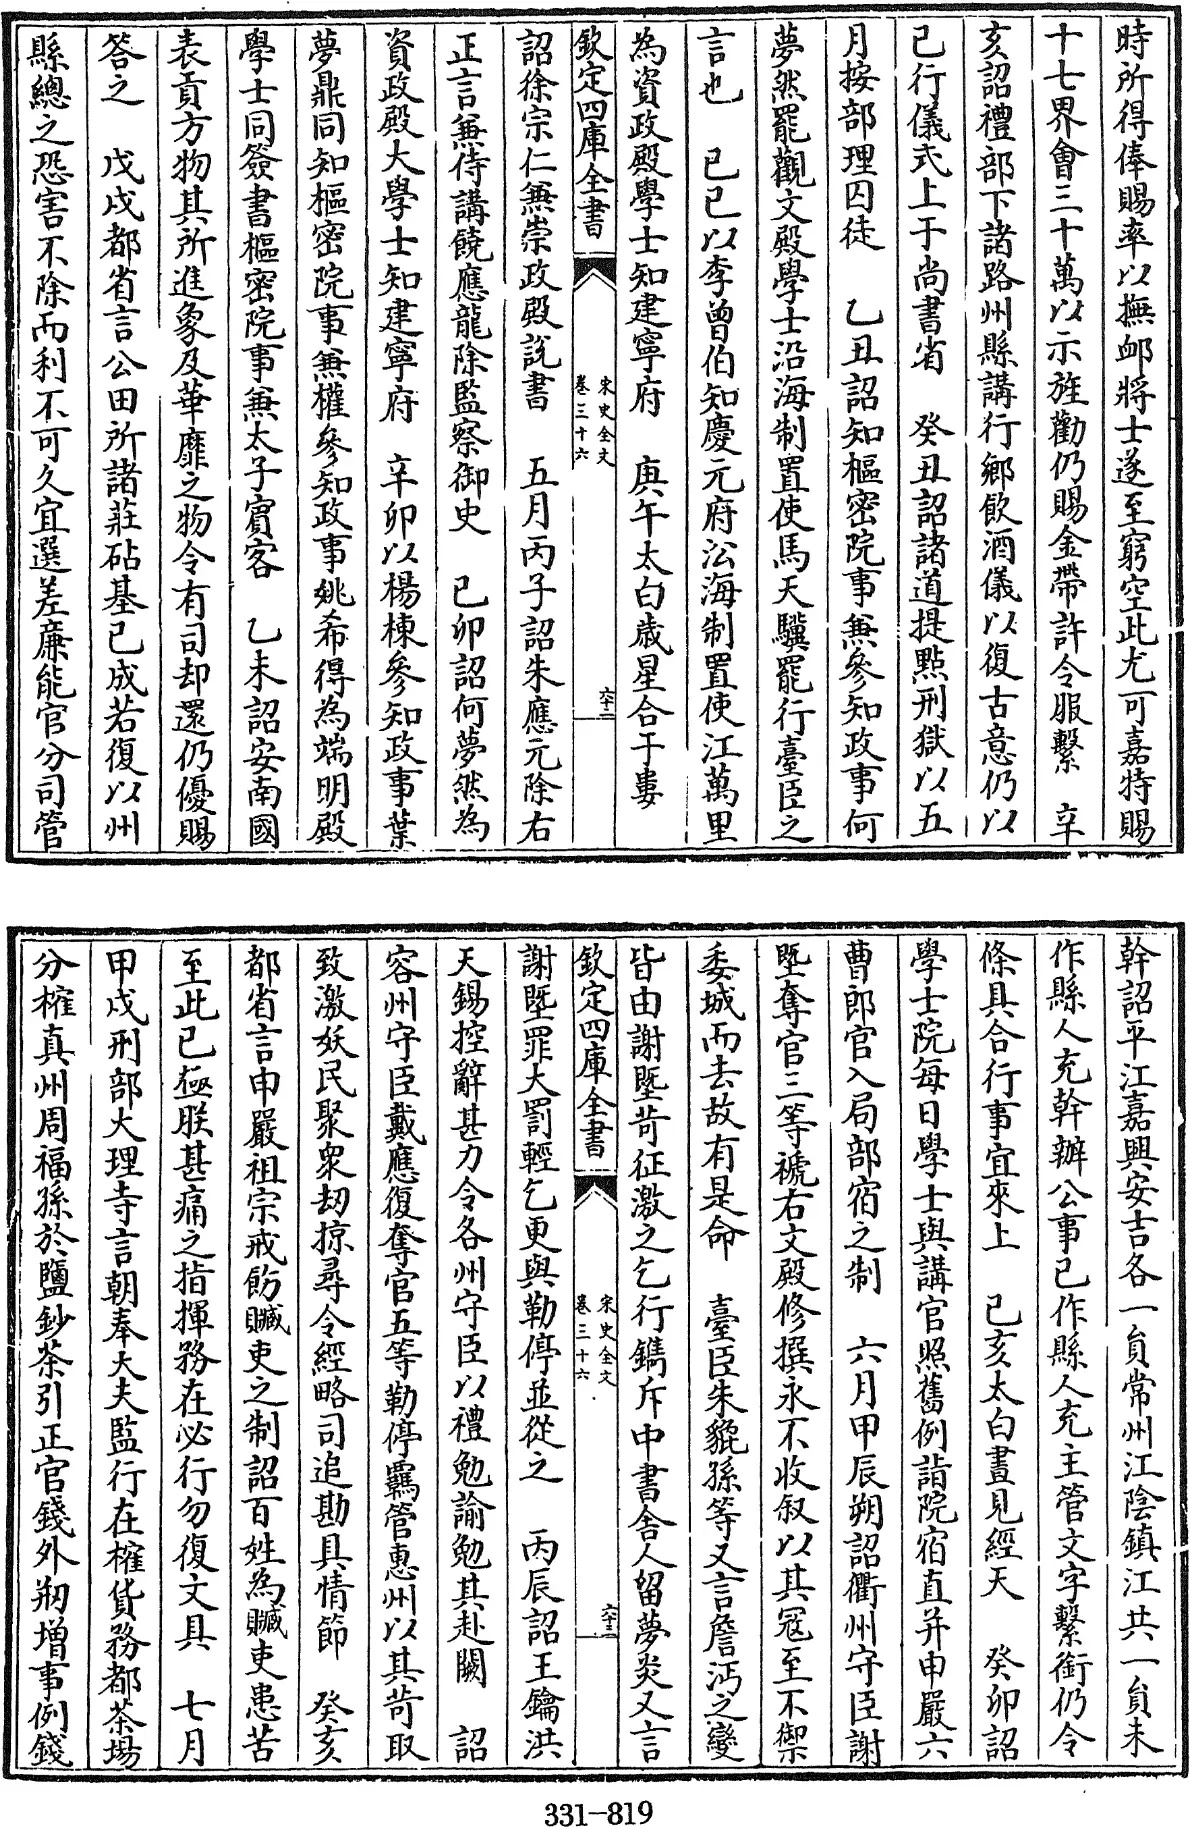 時所得俸賜率以撫䘏將士遂至窮空此尤可嘉特賜
十七界會三十萬以示旌勸仍賜金帶許令服繫　辛
亥詔禮部下諸路州縣講行鄉飲酒儀以復古意仍以
已行儀式上于尚書省　癸丑詔諸道提㸃刑獄以五
月按部理囚徒　乙丑詔知樞密院事兼參知政事何
夢然罷觀文殿學士沿海制置使馬天驥罷行臺臣之
言也　己巳以李曾伯知慶元府沿海制置使江萬里
為資政殿學士知建寧府　庚午太白歲星合于婁
欽定四庫全書　宋史全文　卷三十六　六十二
詔徐宗仁兼崇政殿說書　五月丙子詔朱應元除右
正言兼侍講饒應龍除監察御史　己卯詔何夢然為
資政殿大學士知建寧府　辛卯以楊棟參知政事葉
夢鼎同知樞密院事兼權參知政事姚希得為端明殿
學士同簽書樞密院事兼太子賓客　乙未詔安南國
表貢方物其所進象及華靡之物令有司却還仍優賜
答之　戊戌都省言公田所諸莊砧基已成若復以州
縣總之恐害不除而利不可久宜選差廉能官分司管
幹詔平江嘉興安吉各一員常州江陰鎮江共一員未
作縣人充幹辦公事已作縣人充主管文字繫銜仍令
條具合行事宜來上　己亥太白晝見經天　癸卯詔
學士院每日學士與講官照舊例詣院宿直并申嚴六
曹郎官入局部宿之制　六月甲辰朔詔衢州守臣謝
塈奪官三等褫右文殿修撰永不收叙以其冦至不禦
委城而去故有是命　臺臣朱貔孫等又言詹沔之變
皆由謝塈苛征激之乞行鐫斥中書舍人留夢炎又言
欽定四庫全書　宋史全文　卷三十六　六十三
謝塈罪大罰輕乞更與勒停並從之　丙辰詔王鑰洪
天錫控辭甚力令各州守臣以禮勉諭勉其赴闕　詔
容州守臣戴應復奪官五等勒停羈管惠州以其苛取
致激妖民聚衆刼掠尋令經略司追勘具情節　癸亥
都省言申嚴祖宗戒飭贓吏之制詔百姓為贓吏患苦
至此已極朕甚痛之指揮務在必行勿復文具　七月
甲戌刑部大理寺言朝奉大夫監行在榷貨務都茶場
分榷真州周福孫於鹽鈔茶引正官錢外剏增事例錢
331-819